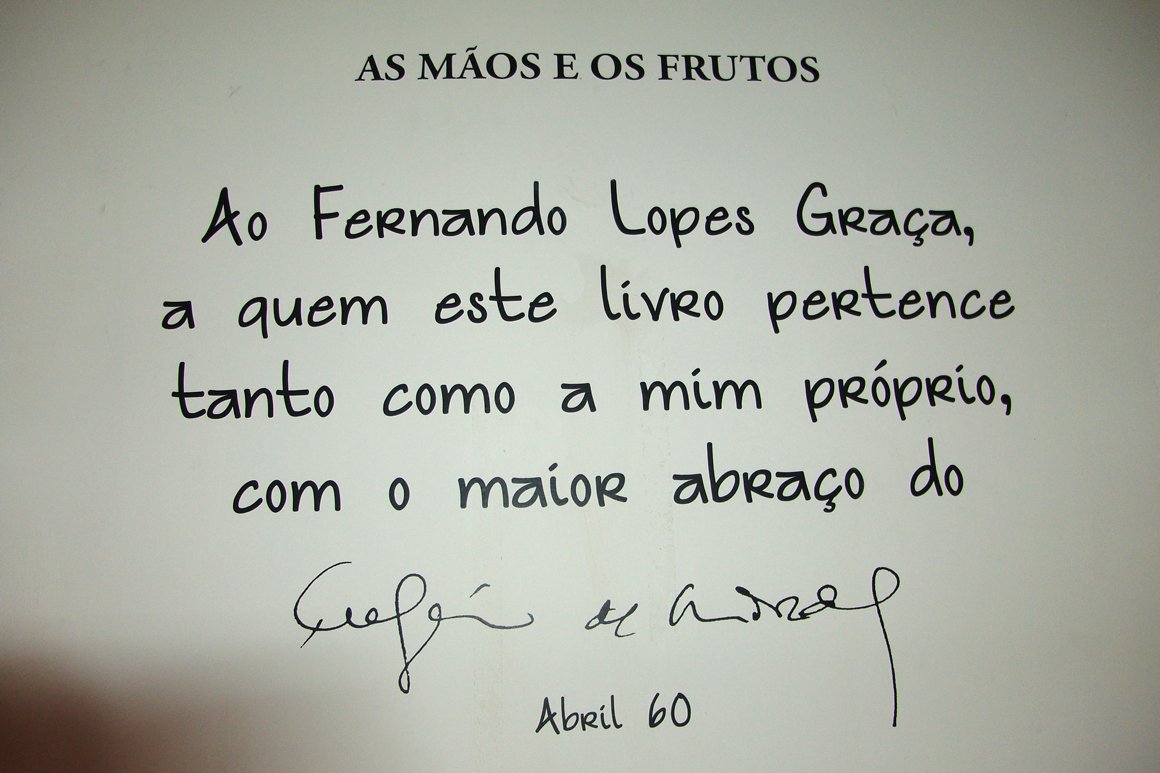 AS MÃOS E OS FRUTOS
Ao Fernando Lopes Graça,
a quem este livro pertence
tanto como a mim próprio,
com o maior abraço do
Eugénio de Andrade
Abril 60